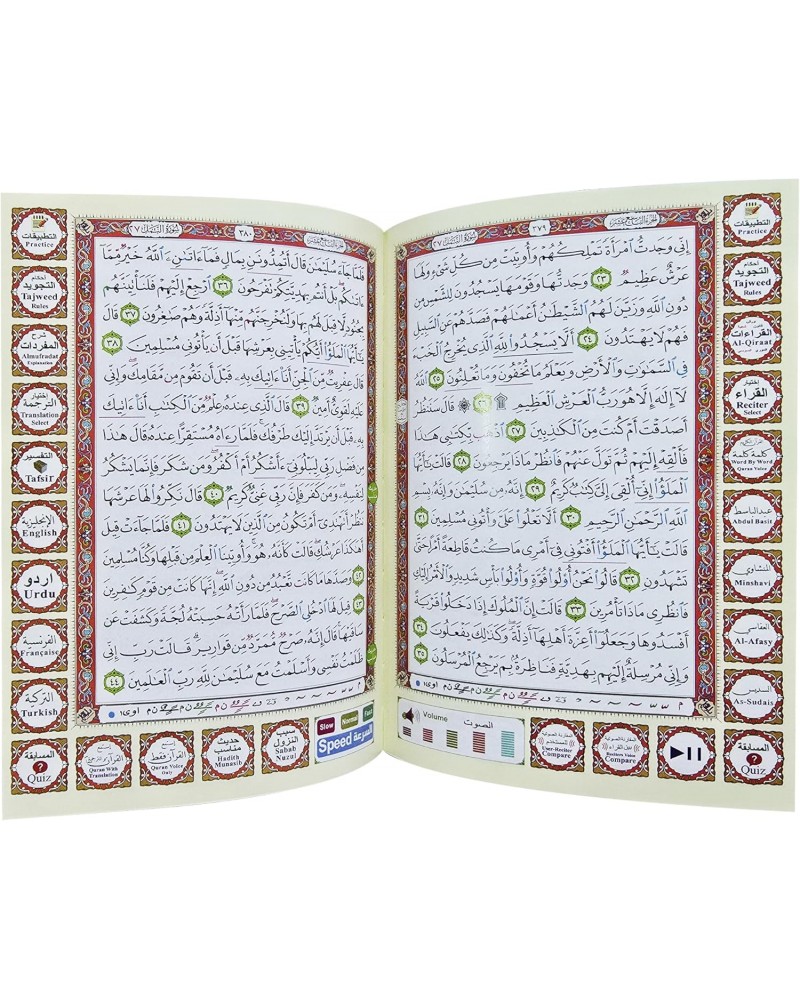 الجزء التاسع عشر
٣٧٩
سورة النمل ٢٧
إِنِّي وَجَدتُّ ٱمْرَأَةً تَمْلِكُهُمْ وَأُوتِيَتْ مِن كُلِّ شَيْءٍ وَلَهَا
عَرْشٌ عَظِيمٌ ٢٣ وَجَدتُّهَا وَقَوْمَهَا يَسْجُدُونَ لِلشَّمْسِ مِن
دُونِ ٱللَّهِ وَزَيَّنَ لَهُمُ ٱلشَّيْطَٰنُ أَعْمَٰلَهُمْ فَصَدَّهُمْ عَنِ ٱلسَّبِيلِ
فَهُمْ لَا يَهْتَدُونَ ٢٤ أَلَّا يَسْجُدُوا۟ لِلَّهِ ٱلَّذِي يُخْرِجُ ٱلْخَبْءَ
فِي ٱلسَّمَٰوَٰتِ وَٱلْأَرْضِ وَيَعْلَمُ مَا تُخْفُونَ وَمَا تُعْلِنُونَ ٢٥
ٱللَّهُ لَآ إِلَٰهَ إِلَّا هُوَ رَبُّ ٱلْعَرْشِ ٱلْعَظِيمِ ۩ ٢٦ ۞ قَالَ سَنَنظُرُ
أَصَدَقْتَ أَمْ كُنتَ مِنَ ٱلْكَٰذِبِينَ ٢٧ ٱذْهَب بِّكِتَٰبِي هَٰذَا
فَأَلْقِهْ إِلَيْهِمْ ثُمَّ تَوَلَّ عَنْهُمْ فَٱنظُرْ مَاذَا يَرْجِعُونَ ٢٨ قَالَتْ يَٰٓأَيُّهَا
ٱلْمَلَؤُا۟ إِنِّيٓ أُلْقِيَ إِلَيَّ كِتَٰبٌ كَرِيمٌ ٢٩ إِنَّهُۥ مِن سُلَيْمَٰنَ وَإِنَّهُۥ بِسْمِ
ٱللَّهِ ٱلرَّحْمَٰنِ ٱلرَّحِيمِ ٣٠ أَلَّا تَعْلُوا۟ عَلَيَّ وَأْتُونِي مُسْلِمِينَ ٣١
قَالَتْ يَٰٓأَيُّهَا ٱلْمَلَؤُا۟ أَفْتُونِي فِيٓ أَمْرِي مَا كُنتُ قَاطِعَةً أَمْرًا حَتَّىٰ
تَشْهَدُونِ ٣٢ قَالُوا۟ نَحْنُ أُو۟لُوا۟ قُوَّةٍ وَأُو۟لُوا۟ بَأْسٍ شَدِيدٍ وَٱلْأَمْرُ إِلَيْكِ
فَٱنظُرِي مَاذَا تَأْمُرِينَ ٣٣ قَالَتْ إِنَّ ٱلْمُلُوكَ إِذَا دَخَلُوا۟ قَرْيَةً
أَفْسَدُوهَا وَجَعَلُوٓا۟ أَعِزَّةَ أَهْلِهَآ أَذِلَّةً ۖ وَكَذَٰلِكَ يَفْعَلُونَ ٣٤
وَإِنِّي مُرْسِلَةٌ إِلَيْهِم بِهَدِيَّةٍ فَنَاظِرَةٌۢ بِمَ يَرْجِعُ ٱلْمُرْسَلُونَ ٣٥
التطبيقات
Practice
أحكام
التجويد
Tajweed
Rules
القراءات
Al-Qiraat
إختيار
القراء
Reciter
Select
كلمة كلمة
Word By Word
Quran Voice
عبدالباسط
Abdul Basit
المنشاوي
Minshavi
العفاسي
Al-Afasy
السديس
As-Sudais
Volume الصوت
User-Reciter
Compare
Reciters Voice
Compare
المسابقة
?
Quiz
الجزء التاسع عشر
٣٨٠
سورة النمل ٢٧
فَلَمَّا جَآءَ سُلَيْمَٰنَ قَالَ أَتُمِدُّونَنِ بِمَالٍ فَمَآ ءَاتَىٰنِۦَ ٱللَّهُ خَيْرٌ مِّمَّآ
ءَاتَىٰكُم بَلْ أَنتُم بِهَدِيَّتِكُمْ تَفْرَحُونَ ٣٦ ٱرْجِعْ إِلَيْهِمْ فَلَنَأْتِيَنَّهُم
بِجُنُودٍ لَّا قِبَلَ لَهُم بِهَا وَلَنُخْرِجَنَّهُم مِّنْهَآ أَذِلَّةً وَهُمْ صَٰغِرُونَ ٣٧ قَالَ
يَٰٓأَيُّهَا ٱلْمَلَؤُا۟ أَيُّكُمْ يَأْتِينِي بِعَرْشِهَا قَبْلَ أَن يَأْتُونِي مُسْلِمِينَ ٣٨
قَالَ عِفْرِيتٌ مِّنَ ٱلْجِنِّ أَنَا۠ ءَاتِيكَ بِهِۦ قَبْلَ أَن تَقُومَ مِن مَّقَامِكَ ۖ وَإِنِّي
عَلَيْهِ لَقَوِيٌّ أَمِينٌ ٣٩ قَالَ ٱلَّذِي عِندَهُۥ عِلْمٌ مِّنَ ٱلْكِتَٰبِ أَنَا۠ ءَاتِيكَ
بِهِۦ قَبْلَ أَن يَرْتَدَّ إِلَيْكَ طَرْفُكَ ۚ فَلَمَّا رَءَاهُ مُسْتَقِرًّا عِندَهُۥ قَالَ هَٰذَا
مِن فَضْلِ رَبِّي لِيَبْلُوَنِيٓ ءَأَشْكُرُ أَمْ أَكْفُرُ ۖ وَمَن شَكَرَ فَإِنَّمَا يَشْكُرُ
لِنَفْسِهِۦ ۖ وَمَن كَفَرَ فَإِنَّ رَبِّي غَنِيٌّ كَرِيمٌ ٤٠ قَالَ نَكِّرُوا۟ لَهَا عَرْشَهَا
نَنظُرْ أَتَهْتَدِيٓ أَمْ تَكُونُ مِنَ ٱلَّذِينَ لَا يَهْتَدُونَ ٤١ فَلَمَّا جَآءَتْ قِيلَ
أَهَٰكَذَا عَرْشُكِ ۖ قَالَتْ كَأَنَّهُۥ هُوَ ۚ وَأُوتِينَا ٱلْعِلْمَ مِن قَبْلِهَا وَكُنَّا مُسْلِمِينَ
٤٢ وَصَدَّهَا مَا كَانَت تَّعْبُدُ مِن دُونِ ٱللَّهِ ۖ إِنَّهَا كَانَتْ مِن قَوْمٍ كَٰفِرِينَ
٤٣ قِيلَ لَهَا ٱدْخُلِي ٱلصَّرْحَ ۖ فَلَمَّا رَأَتْهُ حَسِبَتْهُ لُجَّةً وَكَشَفَتْ عَن
سَاقَيْهَا ۚ قَالَ إِنَّهُۥ صَرْحٌ مُّمَرَّدٌ مِّن قَوَارِيرَ ۗ قَالَتْ رَبِّ إِنِّي
ظَلَمْتُ نَفْسِي وَأَسْلَمْتُ مَعَ سُلَيْمَٰنَ لِلَّهِ رَبِّ ٱلْعَٰلَمِينَ ٤٤
التطبيقات
Practice
أحكام
التجويد
Tajweed
Rules
شرح
المفردات
Almufradat
Explanation
إختيار
الترجمة
Translation
Select
التفسير
Tafsir
الإنجليزية
English
اردو
Urdu
الفرنسية
Française
التركية
Turkish
المسابقة
?
Quiz
Quran With
Translation
القرآن فقط
Quran Voice
Only
حديث
مناسب
Hadith
Munasib
سبب
النزول
Sabab
Nuzul
Slow Normal Fast
Speed السرعة